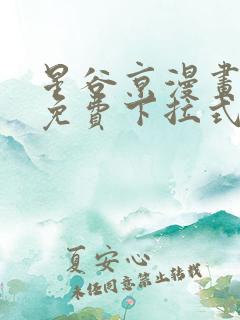 星谷京漫畫
免費下拉式
夏安心
未经同意禁止转载